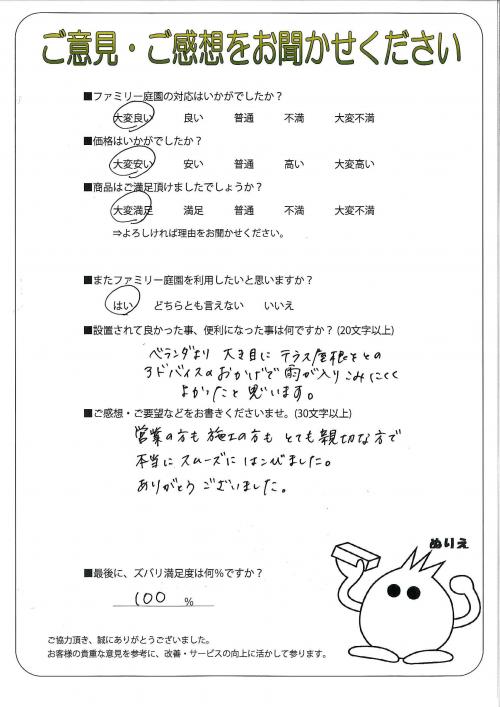 ご意見・ご感想をお聞かせください
■ファミリー庭園の対応はいかがでしたか？
大変良い 良い 普通 不満 大変不満
■価格はいかがでしたか？
大変安い 安い 普通 高い 大変高い
■商品はご満足頂けましたでしょうか？
大変満足 満足 普通 不満 大変不満
⇒よろしければ理由をお聞かせください。
■またファミリー庭園を利用したいと思いますか？
はい どちらとも言えない いいえ
■設置されて良かった事、便利になった事は何ですか？(20文字以上)
ベランダより 大き目に テラス屋根をとの
アドバイスのおかげで 雨が入りこみにくく
よかったと思います。
■ご感想・ご要望などをお書きくださいませ。(30文字以上)
営業の方も 施工の方も とても親切な方で
本当に スムーズに はこびました。
ありがとう ございました。
ぬりえ
■最後に、ズバリ満足度は何％ですか？
100 ％
ご協力頂き、誠にありがとうございました。
お客様の貴重な意見を参考に、改善・サービスの向上に活かして参ります。